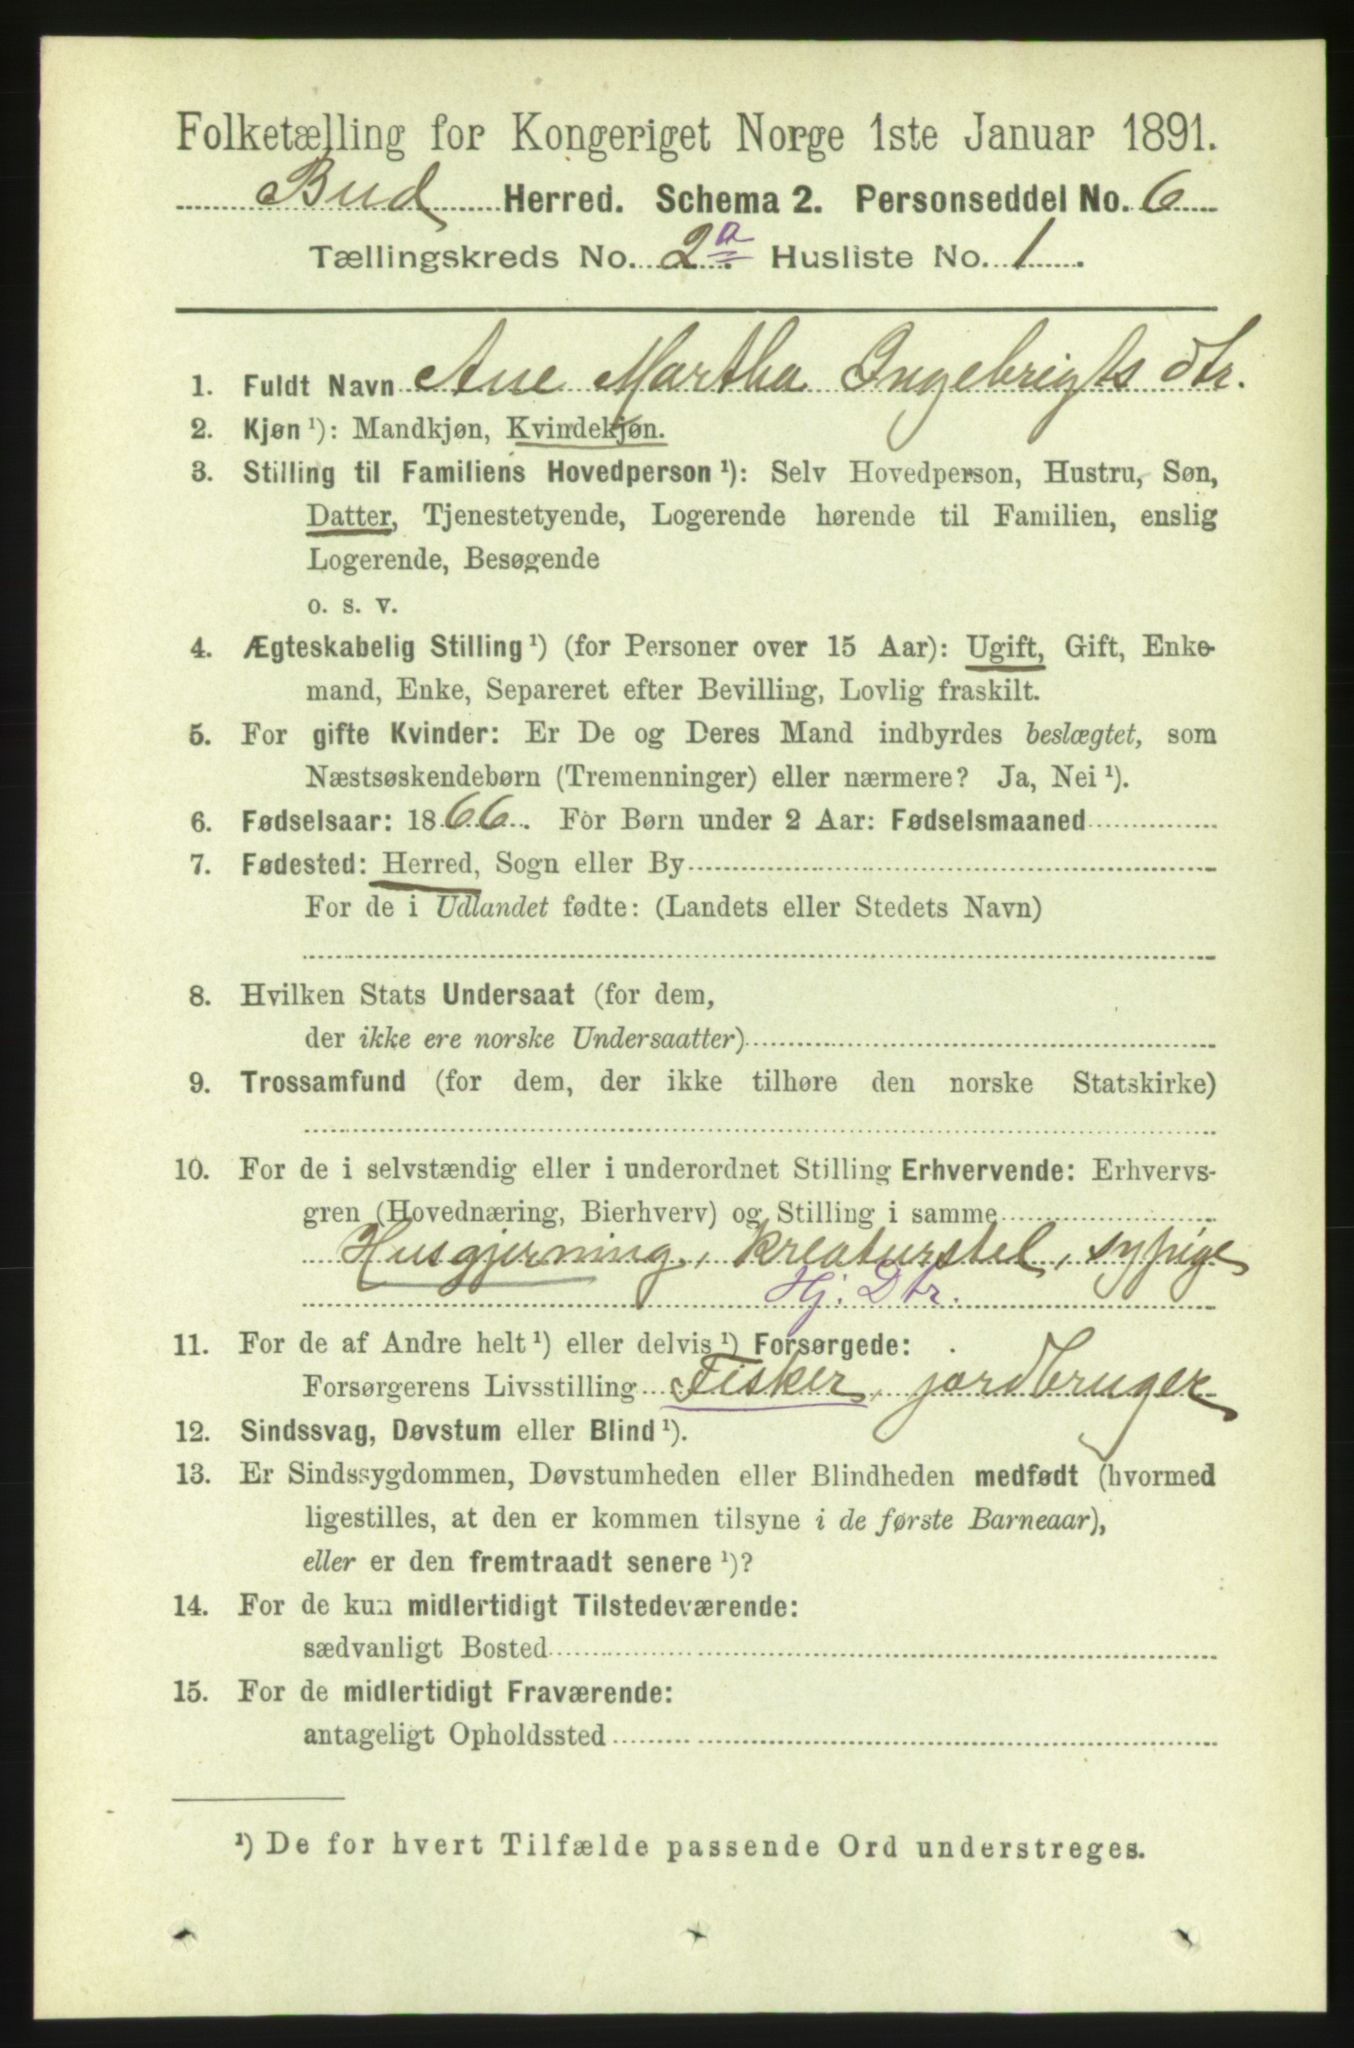 Folketælling for Kongeriget Norge 1ste Januar 1891.
Bud Herred. Schema 2. Personseddel No. 6
Tællingskreds No. 2a Husliste No. 1.
1. Fuldt Navn Ane Martha Ingebrigts dtr.
2. Kjøn ¹): Mandkjøn, Kvindekjøn.
3. Stilling til Familiens Hovedperson ¹): Selv Hovedperson, Hustru, Søn,
Datter, Tjenestetyende, Logerende hørende til Familien, enslig
Logerende, Besøgende
o. s. v.
4. Ægteskabelig Stilling ¹) (for Personer over 15 Aar): Ugift, Gift, Enke-
mand, Enke, Separeret efter Bevilling, Lovlig fraskilt.
5. For gifte Kvinder: Er De og Deres Mand indbyrdes beslægtet, som
Næstsøskendebørn (Tremenninger) eller nærmere? Ja, Nei ¹).
6. Fødselsaar: 1866. For Børn under 2 Aar: Fødselsmaaned
7. Fødested: Herred, Sogn eller By
For de i Udlandet fødte: (Landets eller Stedets Navn)
8. Hvilken Stats Undersaat (for dem,
der ikke ere norske Undersaatter)
9. Trossamfund (for dem, der ikke tilhøre den norske Statskirke)
10. For de i selvstændig eller i underordnet Stilling Erhvervende: Erhvervs-
gren (Hovednæring, Bierhverv) og Stilling i samme
Husgjerning, kreaturstel, sypige
Hj. Dtr.
11. For de af Andre helt ¹) eller delvis ¹) Forsørgede:
Forsørgerens Livsstilling Fisker, jordbruger
12. Sindssvag, Døvstum eller Blind ¹).
13. Er Sindssygdommen, Døvstumheden eller Blindheden medfødt (hvormed
ligestilles, at den er kommen tilsyne i de første Barneaar),
eller er den fremtraadt senere ¹)?
14. For de kun midlertidigt Tilstedeværende:
sædvanligt Bosted
15. For de midlertidigt Fraværende:
antageligt Opholdssted
¹) De for hvert Tilfælde passende Ord understreges.